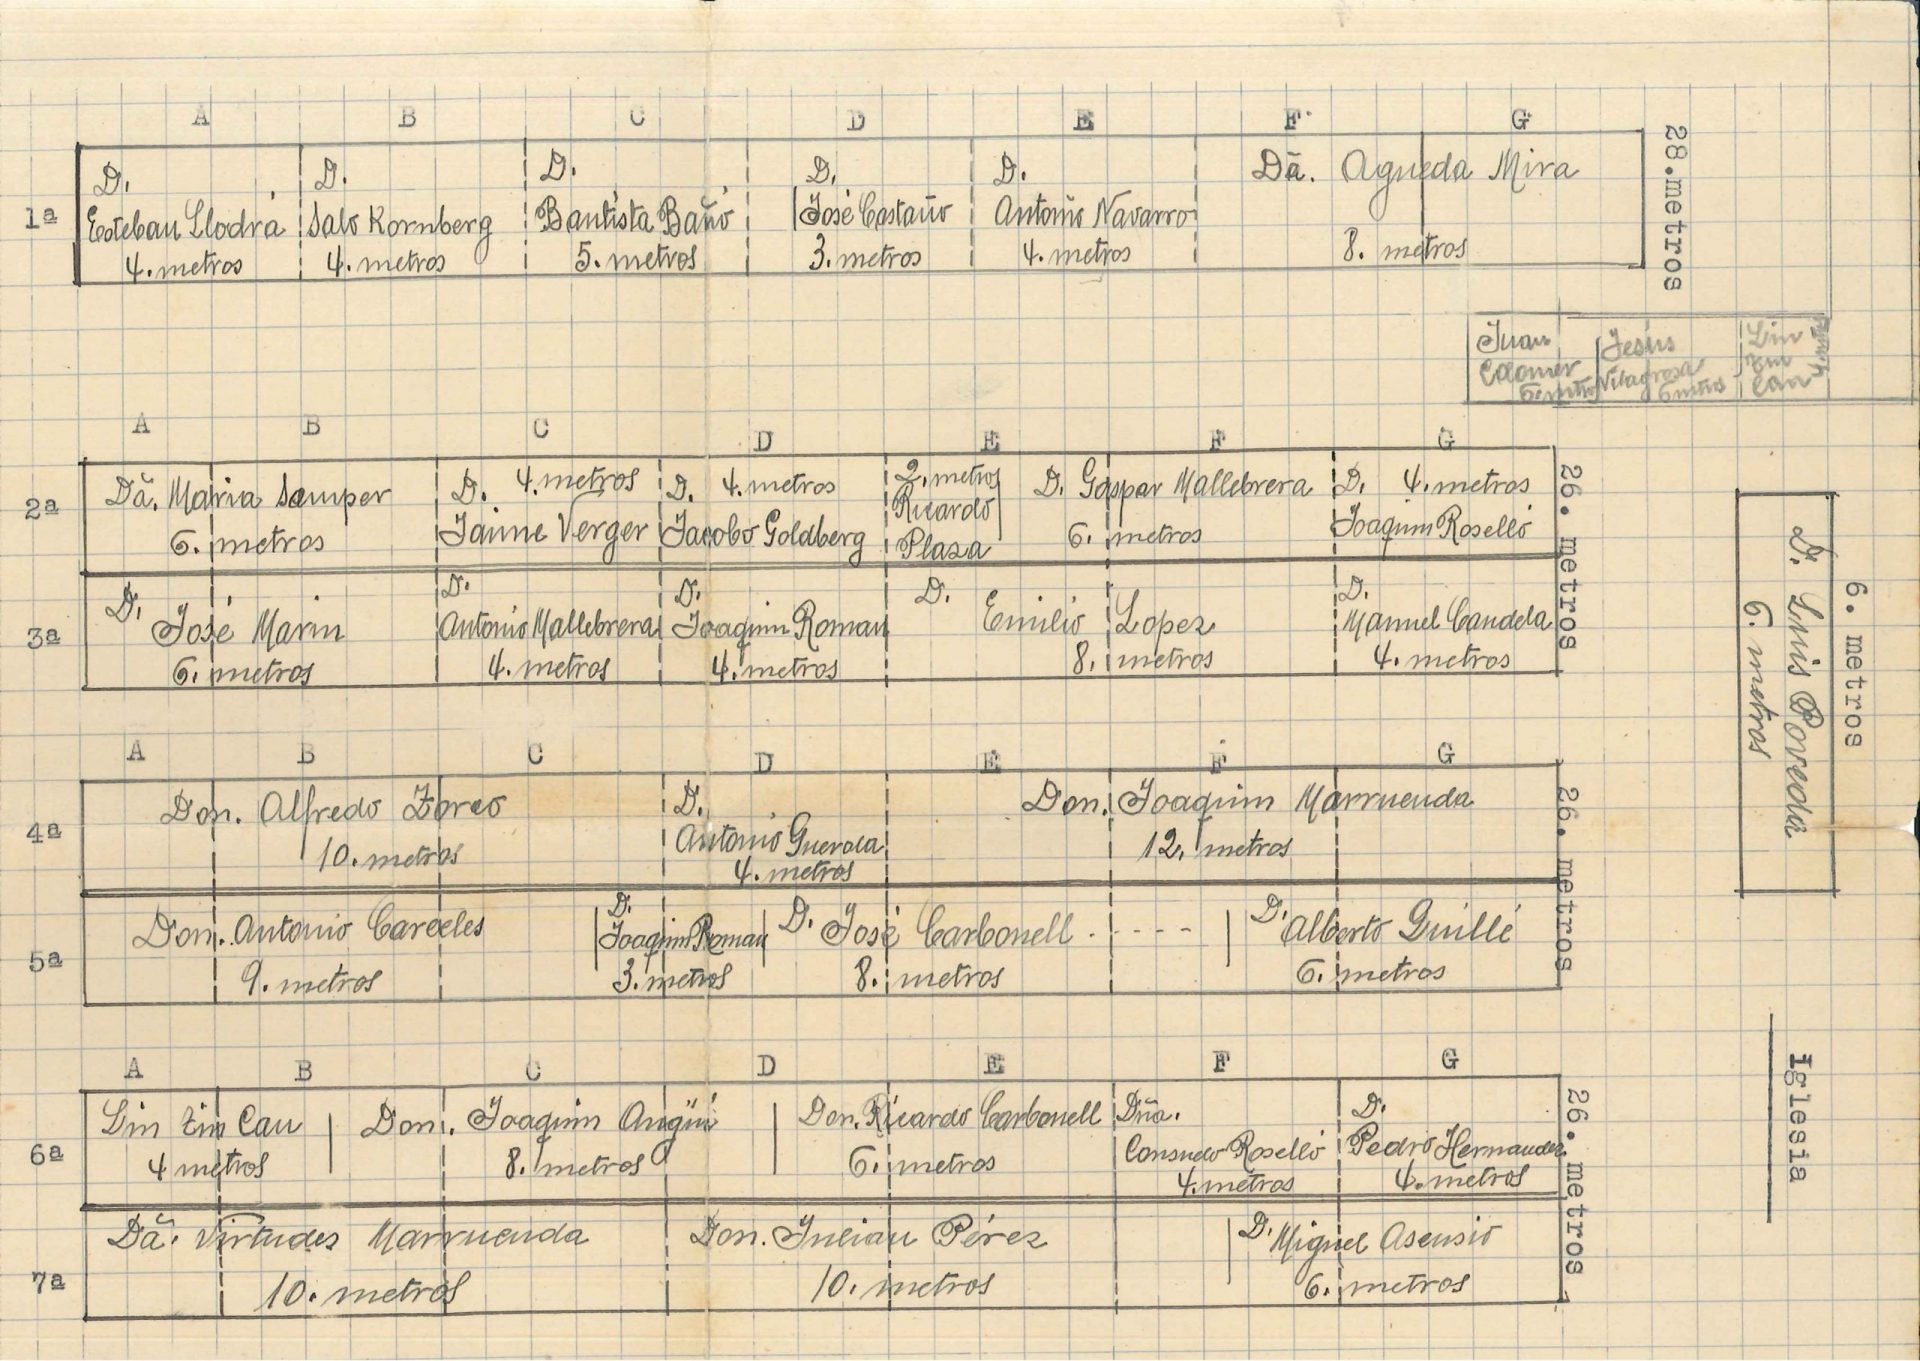 A B C D E F G
1ª
D.
Esteban Llodrá
4. metros
D.
Salo Kornberg
4. metros
D.
Bautista Bañó
5. metros
D.
José Castaño
3. metros
D.
Antonio Navarro
4. metros
Dã. Agueda Mira
8. metros
28.metros
Juan
Colomer
6 metros
Jesús
Vilagrosa
6 metros
Lin
Zin
Cau
A B C D E F G
2ª
Dã. Maria Samper
6. metros
D. 4. metros
Jaime Verger
D. 4. metros
Jacobo Goldberg
2. metros
Ricardo
Plaza
D. Gaspar Mallebrera
6. metros
D. 4. metros
Joaquin Roselló
3ª
D. José Marin
6. metros
D.
Antonio Mallebrera
4. metros
D.
Joaquin Roman
4. metros
D. Emilio Lopez
8. metros
D.
Manuel Candela
4. metros
26. metros
6. metros
D. Luis Poveda
6. metros
A B C D E F G
4ª
Don. Alfredo Zorco
10. metros
D.
Antonio Guerola
4. metros
Don. Joaquim Marruenda
12. metros
5ª
Don. Antonio Carceles
9. metros
D.
Joaquin Roman
3. metros
D. José Carbonell - - - - -
8. metros
D. Alberto Guillé
6. metros
26. metros
A B C D E F G
6ª
Lin Zin Cau
4 metros
Don. Joaquim Angüi
8. metros
Don. Ricardo Carbonell
6. metros
Dña.
Consuelo Roselló
4. metros
D.
Pedro Hernandez
4. metros
7ª
Dã. Virtudes Marruenda
10. metros
Don. Julian Pérez
10. metros
D. Miguel Asensio
6. metros
26. metros
Iglesia